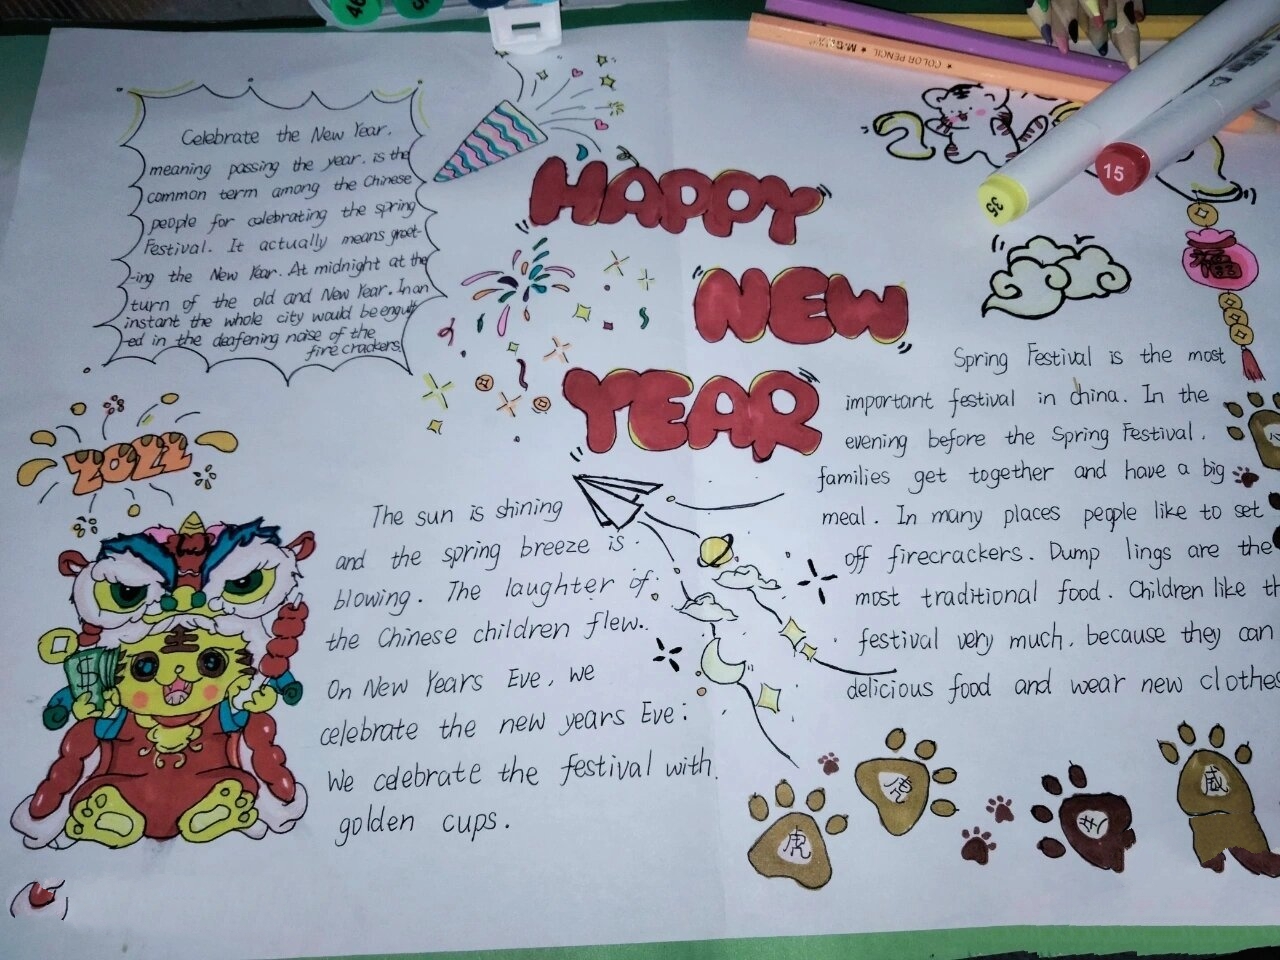 Celebrate the New Year.
meaning passing the year. is the
common term among the Chinese
people for celebrating the spring
Festival. It actually means greet-
-ing the New Year. At midnight at the
turn of the old and New Year. In an
instant the whole city would be engulf
-ed in the deafening noise of the
fire crackers.
HAPPY
NEW
YEAR
2022
The sun is shining
and the spring breeze is
blowing. The laughter of
the Chinese children flew.
On New Years Eve, we
celebrate the new years Eve:
We celebrate the festival with
golden cups.
Spring Festival is the most
important festival in china. In the
evening before the Spring Festival.
families get together and have a big
meal. In many places people like to set
off firecrackers. Dump lings are the
most traditional food. Children like th
festival very much. because they can
delicious food and wear new clothes
福
王
$
虎
虎
威
COLOR PENCIL ★ M&G
35
15
46